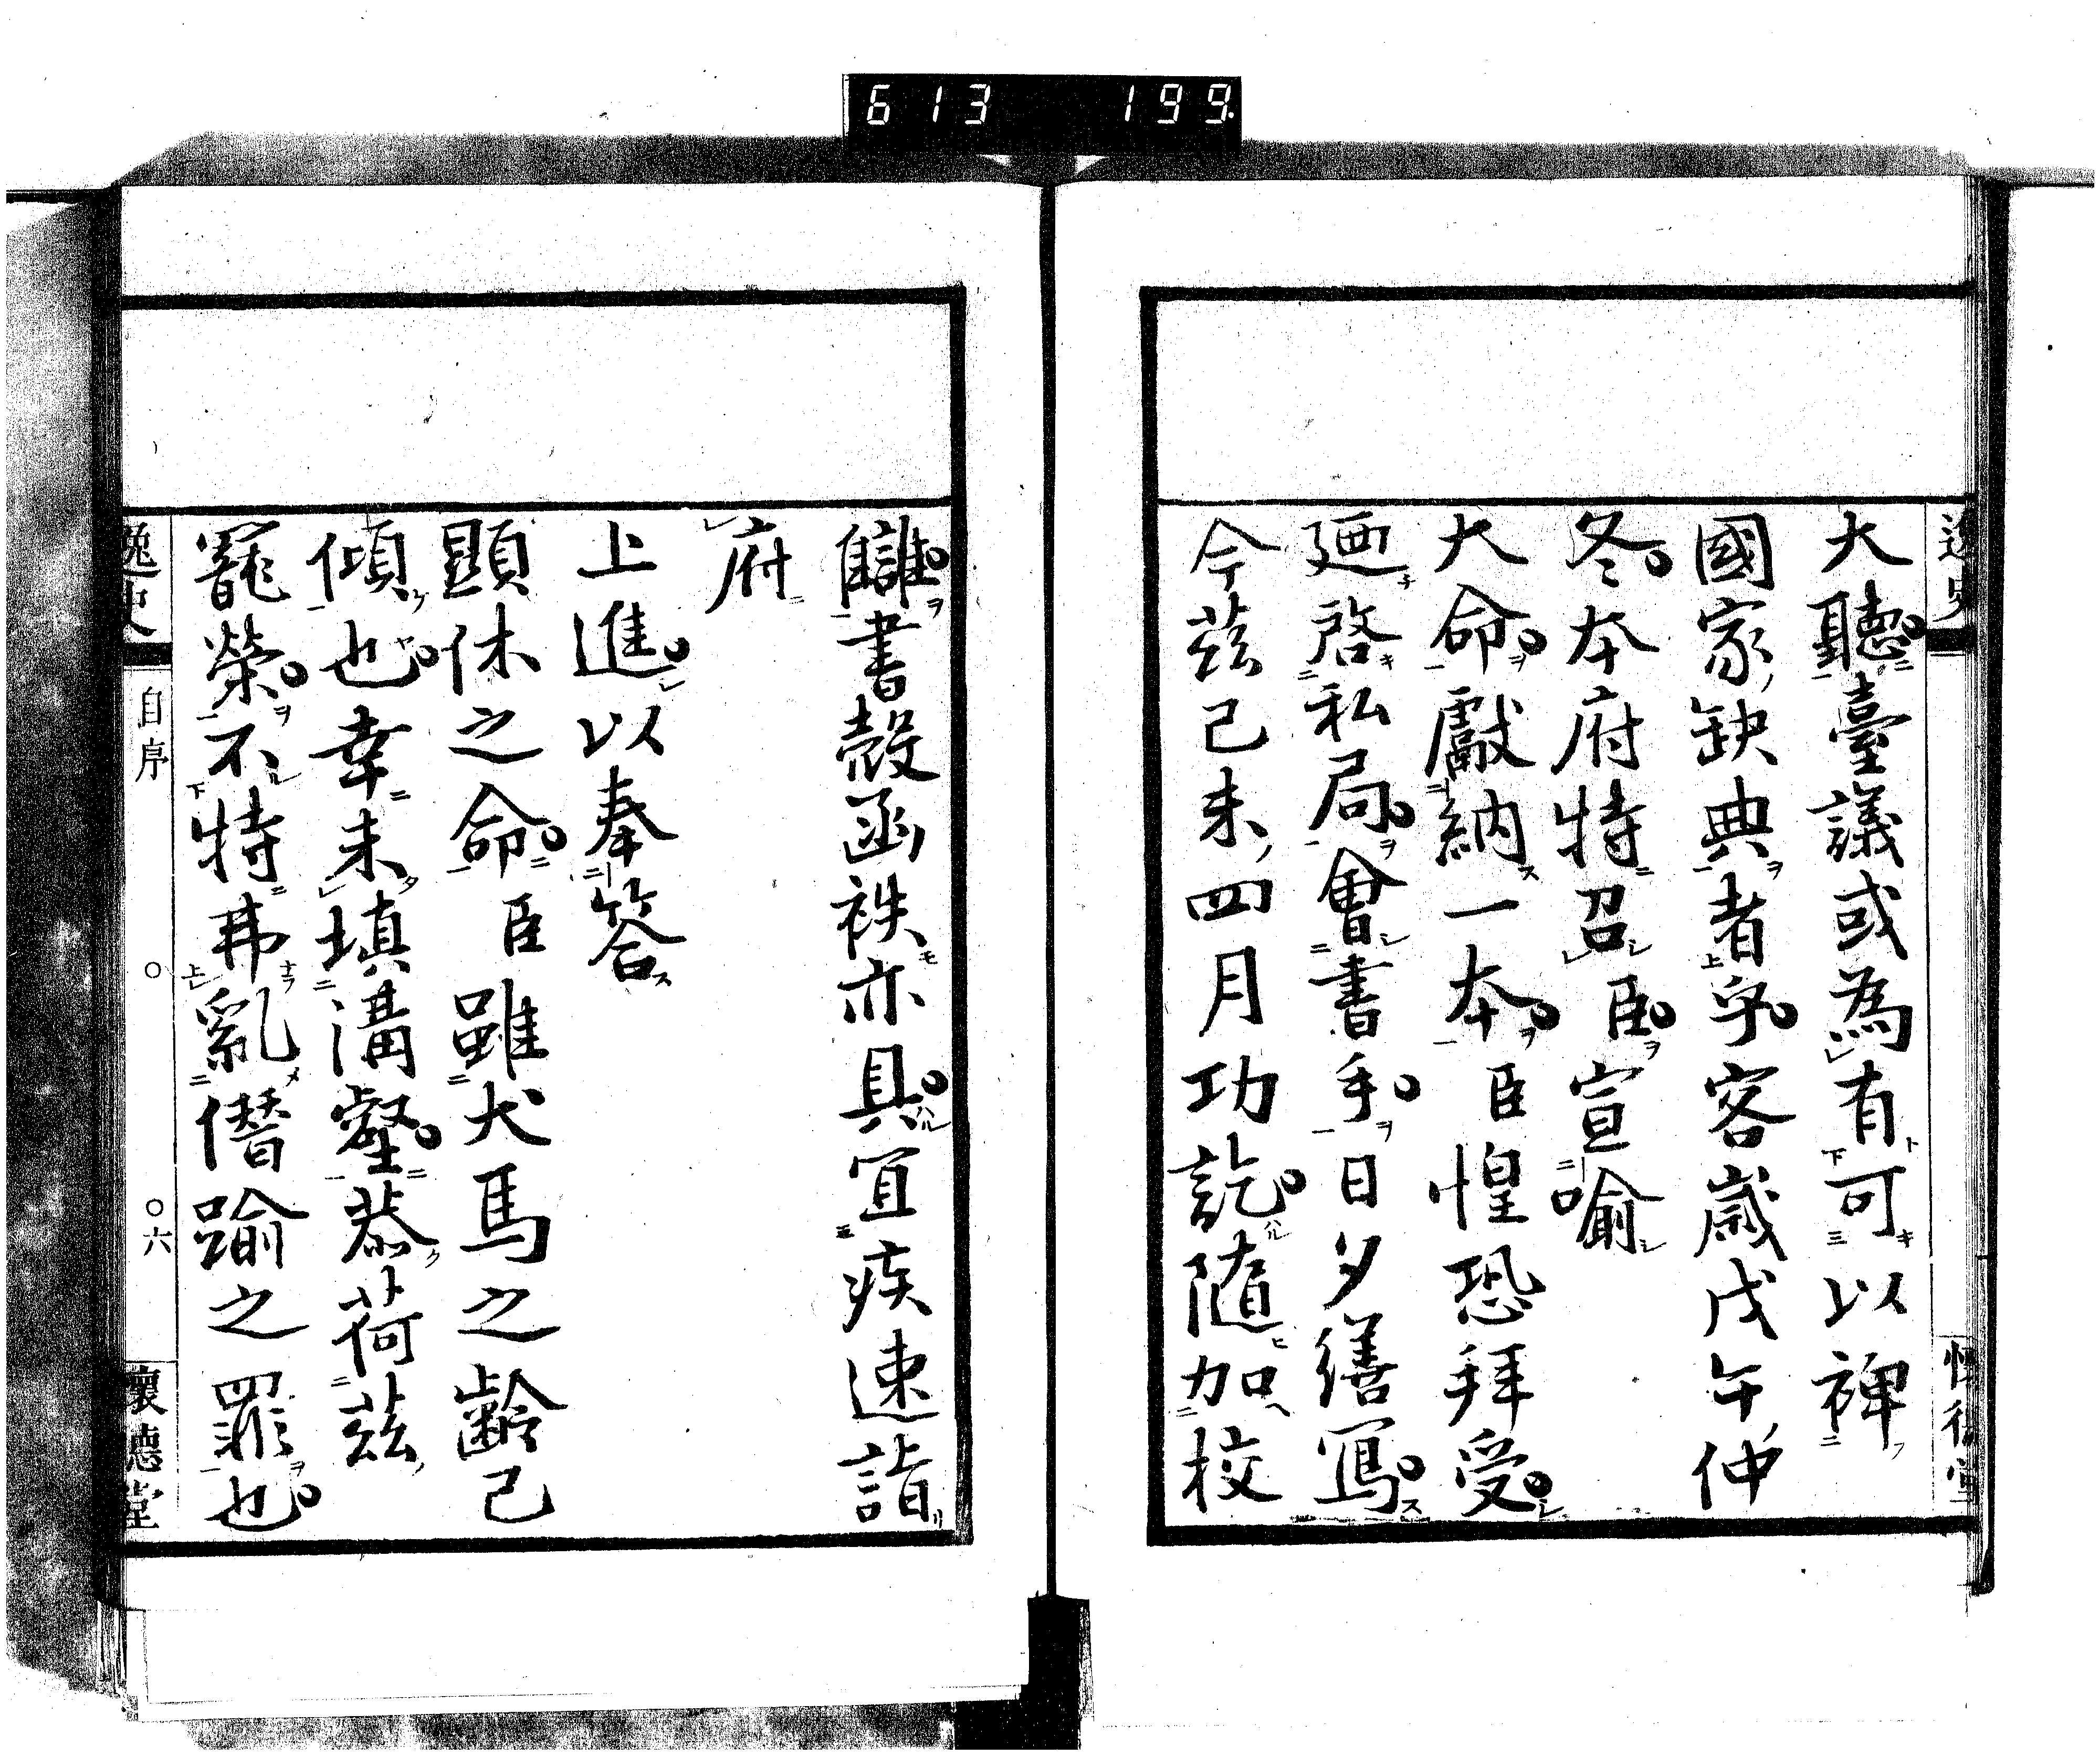 613 199
逸史
大聽臺議或為有可以裨
國家缺典者乎客歳戊午仲
冬本府特召臣宣喻
大命獻納一本臣惶恐拜受
廼啓私局會書手日夕繕寫
今茲己未四月功訖随加校
讎書殻函袟亦具宜疾速詣
府
上進以奉答
顕休之命臣雖犬馬之齢已
傾也幸未填溝壑恭荷茲
寵榮不特弗亂僭踰之罪也
逸史
自序
〇
〇六
懐徳堂